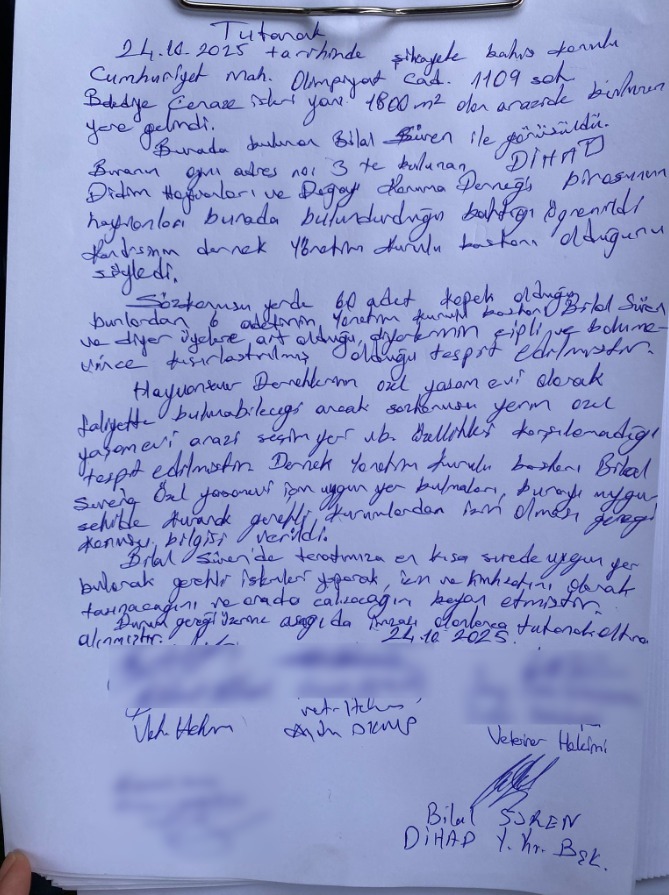 Tutanak
24.10.2025 tarihinde şikayete bahis konulu
Cumhuriyet Mah. Olimpiyat Cad. 1109 sok
Belediye Cenaze işleri yanı 1800 m² olan arazide bulunan
yere gelindi.
Burada bulunan Bilal Süren ile görüşüldü.
Buranın aynı adres no: 3 te bulunan DİHAD
Didim Hayvanları ve Doğayı Koruma Derneği binasının
hayvanları burada bulundurduğu baktığı öğrenildi
Kendisinin dernek Yönetim Kurulu başkanı olduğunu
söyledi.
Sözkonusu yerde 60 adet köpek olduğu
bunlardan 6 adetinin Yönetim Kurulu başkanı Bilal Süren
ve diğer üyelere ait olduğu, diğerlerinin çipli ve
kısırlaştırılmış olduğu tespit edilmiştir.
Hayvansever Derneklerin özel yaşam evi olarak
faliyette bulunabileceği ancak sözkonusu yerin özel
yaşamevi arazi seçim yeri vb. özellikleri karşılamadığı
tespit edilmiştir. Dernek Yönetim Kurulu başkanı Bilal
Süren'e Özel yaşamevi için uygun yer bulmaları, burayı uygun
şekilde kurarak gerekli kurumlardan izin alması gereği
konusu bilgisi verildi.
Bilal Süren'de tarafımıza en kısa sürede uygun yer
bularak gerekli işlemleri yaparak, izin ve ruhsatını alarak
taşınacağını ve orada çalışacağın beyan etmiştir.
Durum gereği üzerine aşağıda imzası olanlarca tutanak altına
alınmıştır. 24.10.2025.
Vet. Hekim
Vet. Hekim
Aydın DKMP
Veteriner Hekimi
Bilal SÜREN
DİHAD Y. Kr. Bşk.